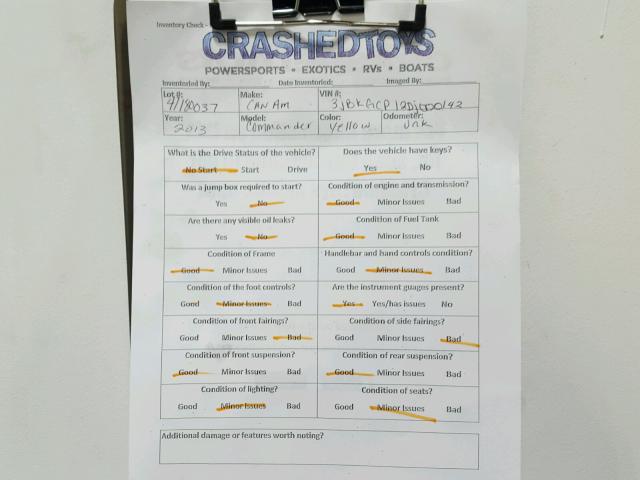 Inventory Check -
CRASHEDTOYS
POWERSPORTS • EXOTICS • RVs • BOATS
Inventoried By: Date Inventoried: Imaged By:
Lot #: Make: VIN #:
41180037 CAN Am
Year: Model: Color: Odometer:
2013 Commander Yellow Unk
What is the Drive Status of the vehicle? Does the vehicle have keys?
No Start Start Drive Yes No
Was a jump box required to start? Condition of engine and transmission?
Yes No Good Minor Issues Bad
Are there any visible oil leaks? Condition of Fuel Tank
Yes No Good Minor Issues Bad
Condition of Frame Handlebar and hand controls condition?
Good Minor Issues Bad Good Minor Issues Bad
Condition of the foot controls? Are the instrument guages present?
Good Minor Issues Bad Yes Yes/has issues No
Condition of front fairings? Condition of side fairings?
Good Minor Issues Bad Good Minor Issues Bad
Condition of front suspension? Condition of rear suspension?
Good Minor Issues Bad Good Minor Issues Bad
Condition of lighting? Condition of seats?
Good Minor Issues Bad Good Minor Issues Bad
Additional damage or features worth noting?